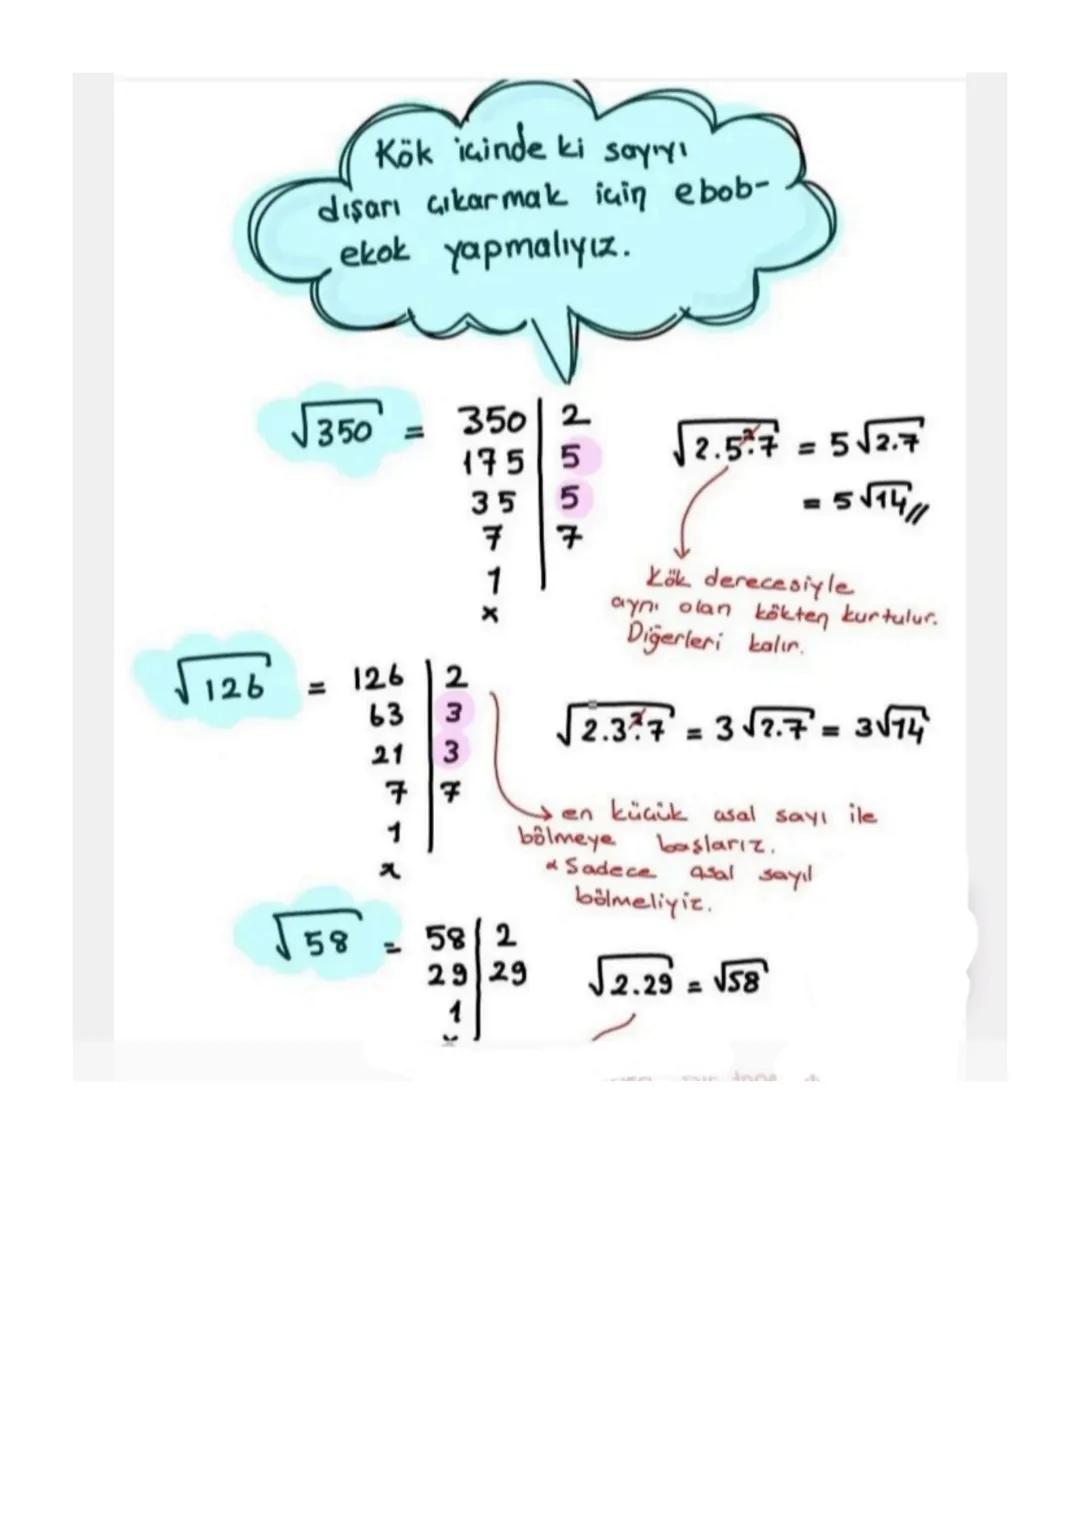 Kök içinde ki sayıyı
dışarı çıkarmak için ebob-
ekok yapmalıyız.
√350 = 350 | 2
175 | 5
35 | 5
7 | 7
1
x
√2.5².7 = 5√2.7
= 5√14//
Kök derecesiyle
aynı olan kökten kurtulur.
Diğerleri kalır.
√126 = 126 | 2
63 | 3
21 | 3
7 | 7
1
x
√2.3².7 = 3√2.7 = 3√14
en küçük asal sayı ile
bölmeye başlarız.
* Sadece asal sayıl
bölmeliyiz.
√58 = 58 | 2
29 | 29
1
x
√2.29 = √58